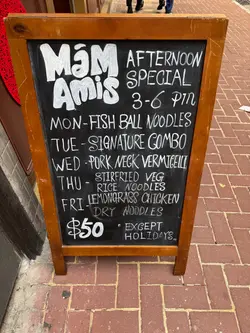 MâM AFTERNOON
Amis SPECIAL
3-6 PM
MON-FISH BALL NOODLES
TUE-SIGNATURE COMBO
WED-PORK NECK VERMICELLI
THU-STIRFRIED VEG
RICE NOODLES
FRI-LEMONGRASS CHICKEN
DRY NOODLES
$50 *EXCEPT
HOLIDAYS*